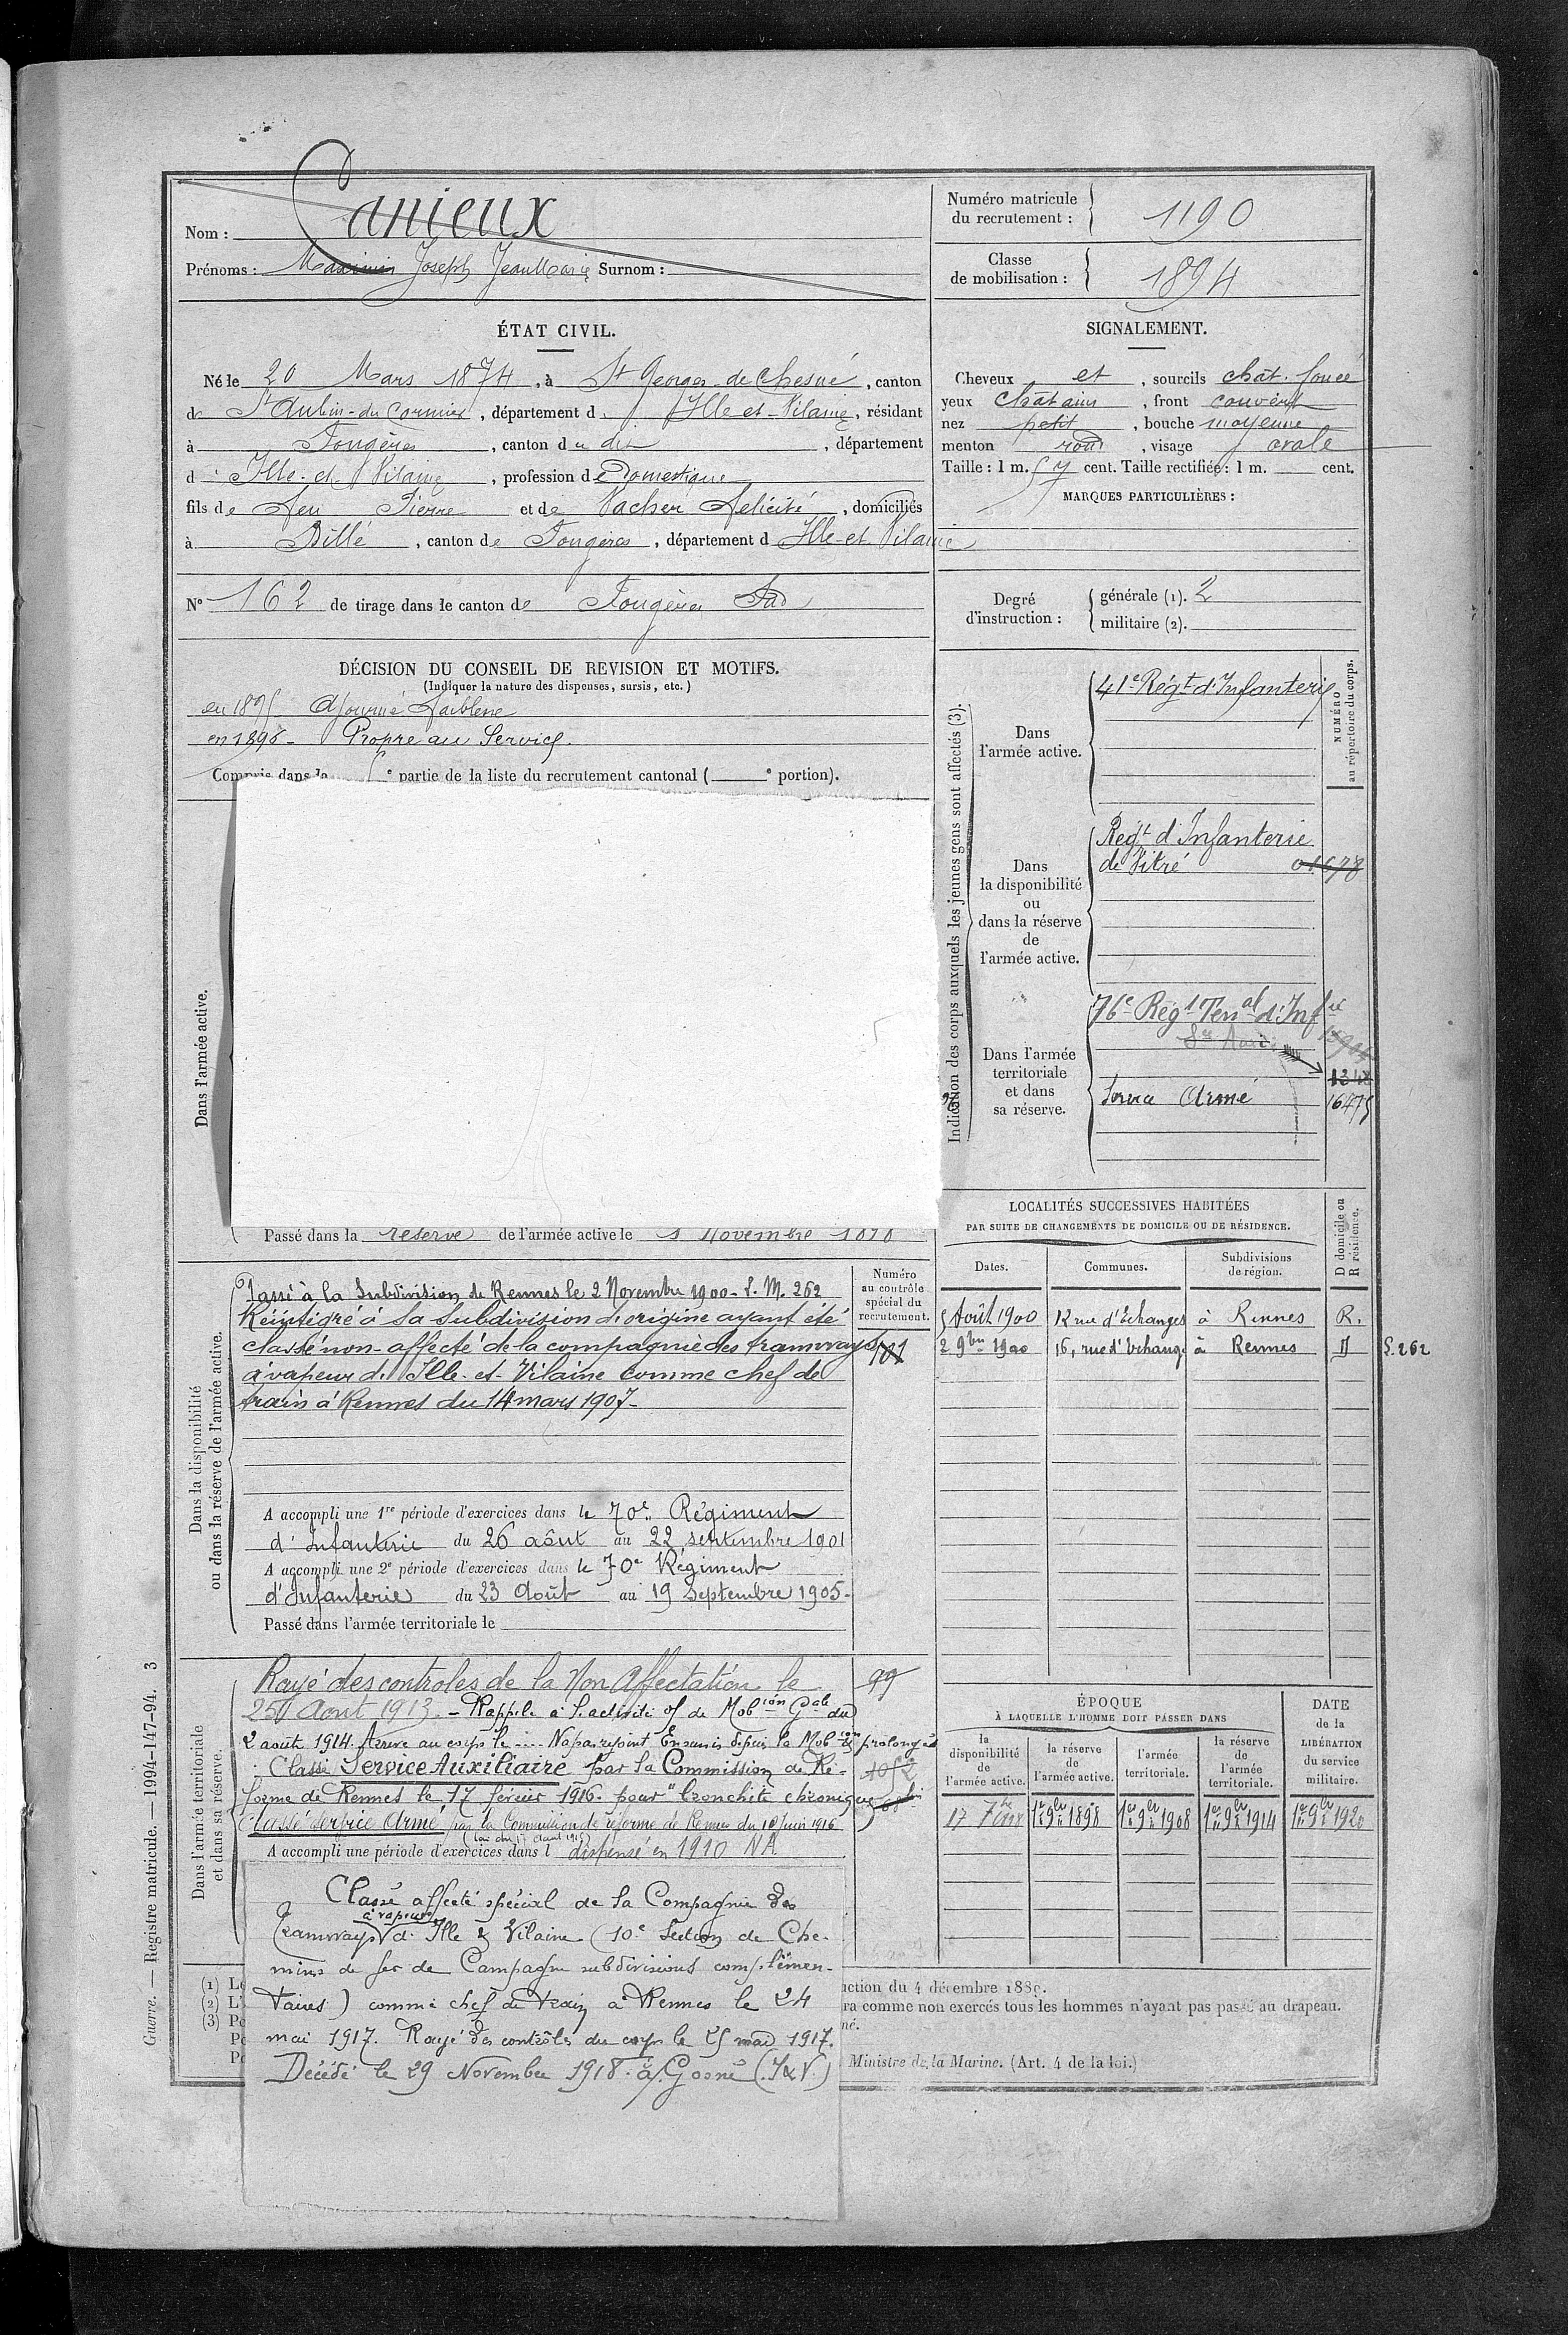 Nom : Canieux
Prénoms : Maximin Joseph Jean Marie Surnom :
Numéro matricule
du recrutement : 1190
Classe
de mobilisation : 1894
ÉTAT CIVIL.
Né le 20 Mars 1874, à St Georges-de-Chesné, canton
de St Aubin-du-Cormier, département d Ille-et-Vilaine, résidant
à Fougères, canton du dit, département
d Ille-et-Vilaine, profession de Domestique
fils de Feu Pierre et de Vacher Félicité, domiciliés
à Billé, canton de Fougères, département d Ille-et-Vilaine
N° 162 de tirage dans le canton de Fougères Sud
SIGNALEMENT.
Cheveux et, sourcils chat. foncé
yeux chatains, front couvert
nez petit, bouche moyenne
menton rond, visage ovale
Taille : 1 m. 57 cent. Taille rectifiée : 1 m. cent.
MARQUES PARTICULIÈRES :
Degré
d'instruction :
générale (1). 2
militaire (2).
DÉCISION DU CONSEIL DE REVISION ET MOTIFS.
(Indiquer la nature des dispenses, sursis, etc.)
en 1895 Ajourné Faiblesse
en 1896 - Propre au Service.
Compris dans la e partie de la liste du recrutement cantonal ( e portion).
Dans l'armée active.
Passé dans la réserve de l'armée active le 1 Novembre 1898
Indication des corps auxquels les jeunes gens sont affectés (3).
NUMÉRO
au répertoire du corps.
Dans
l'armée active.
41e Régt d'Infanterie
Dans
la disponibilité
ou
dans la réserve
de
l'armée active.
Régt d'Infanterie
de Vitré 01678
Dans l'armée
territoriale
et dans
sa réserve.
76e Régt Terral d'Inf ie
Service Armé 16475
LOCALITÉS SUCCESSIVES HABITÉES
PAR SUITE DE CHANGEMENTS DE DOMICILE OU DE RÉSIDENCE.
Dates. Communes. Subdivisions
de région.
D domicile ou
R résidence.
5 Août 1900 12 rue d'Echanges à Rennes R.
2 9bre 1900 16, rue d'Echange à Rennes D S. 262
Dans la disponibilité
ou dans la réserve de l'armée active.
Numéro
au contrôle
spécial du
recrutement.
Passé à la Subdivision de Rennes le 2 Novembre 1900 - S. M. 262
Réintégré à sa subdivision d'origine ayant été
classé non-affecté de la compagnie des tramways
à vapeur d'Ille-et-Vilaine comme chef de
train à Rennes du 14 mars 1907-
A accompli une 1re période d'exercices dans le 70e Régiment
d'Infanterie du 26 août au 22 septembre 1901
A accompli une 2e période d'exercices dans le 70e Régiment
d'Infanterie du 23 Août au 19 Septembre 1905-
Passé dans l'armée territoriale le
Dans l'armée territoriale
et dans sa réserve.
Rayé des controles de la Non Affectation le 99
25 Aout 1913. - Rappelé à l'activité of de Mobion Gale du
2 août 1914. Arrivé au corps le .... N'a pas rejoint En sursis depuis la Mobion prolongés
Classé Service Auxiliaire par la Commission de Ré- 1052
forme de Rennes le 17 février 1916. pour "bronchite chronique
Classé service Armé par la Commission de réforme de Rennes du 10 Juin 1916
(loi du 17 Aout 1915)
A accompli une période d'exercices dans l dispensé en 1910 NA
Classé affecté spécial de la Compagnie des
à vapeur
Tramways d'Ille & Vilaine (10e Section de Che-
mins de fer de Campagne subdivisions complémen-
taires) comme chef de train à Rennes le 24
mai 1917. Rayé des contrôles du corps le 25 mai 1917.
Décédé le 29 Novembre 1918 à Gosné (I&V.)
ÉPOQUE
À LAQUELLE L'HOMME DOIT PASSER DANS
la
disponibilité
de
l'armée active.
la réserve
de
l'armée active.
l'armée
territoriale.
la réserve
de
l'armée
territoriale.
DATE
de la
LIBÉRATION
du service
militaire.
1er 9bre 1898 1er 9bre 1908 1er 9bre 1914 1er 9bre 1920
(1) Le
(2) L'
(3) Po
Po
Po
uction du 4 décembre 1889.
ra comme non exercés tous les hommes n'ayant pas passé au drapeau.
né.
Ministre de la Marine. (Art. 4 de la loi.)
Guerre. — Registre matricule. — 1994-147-94. 3